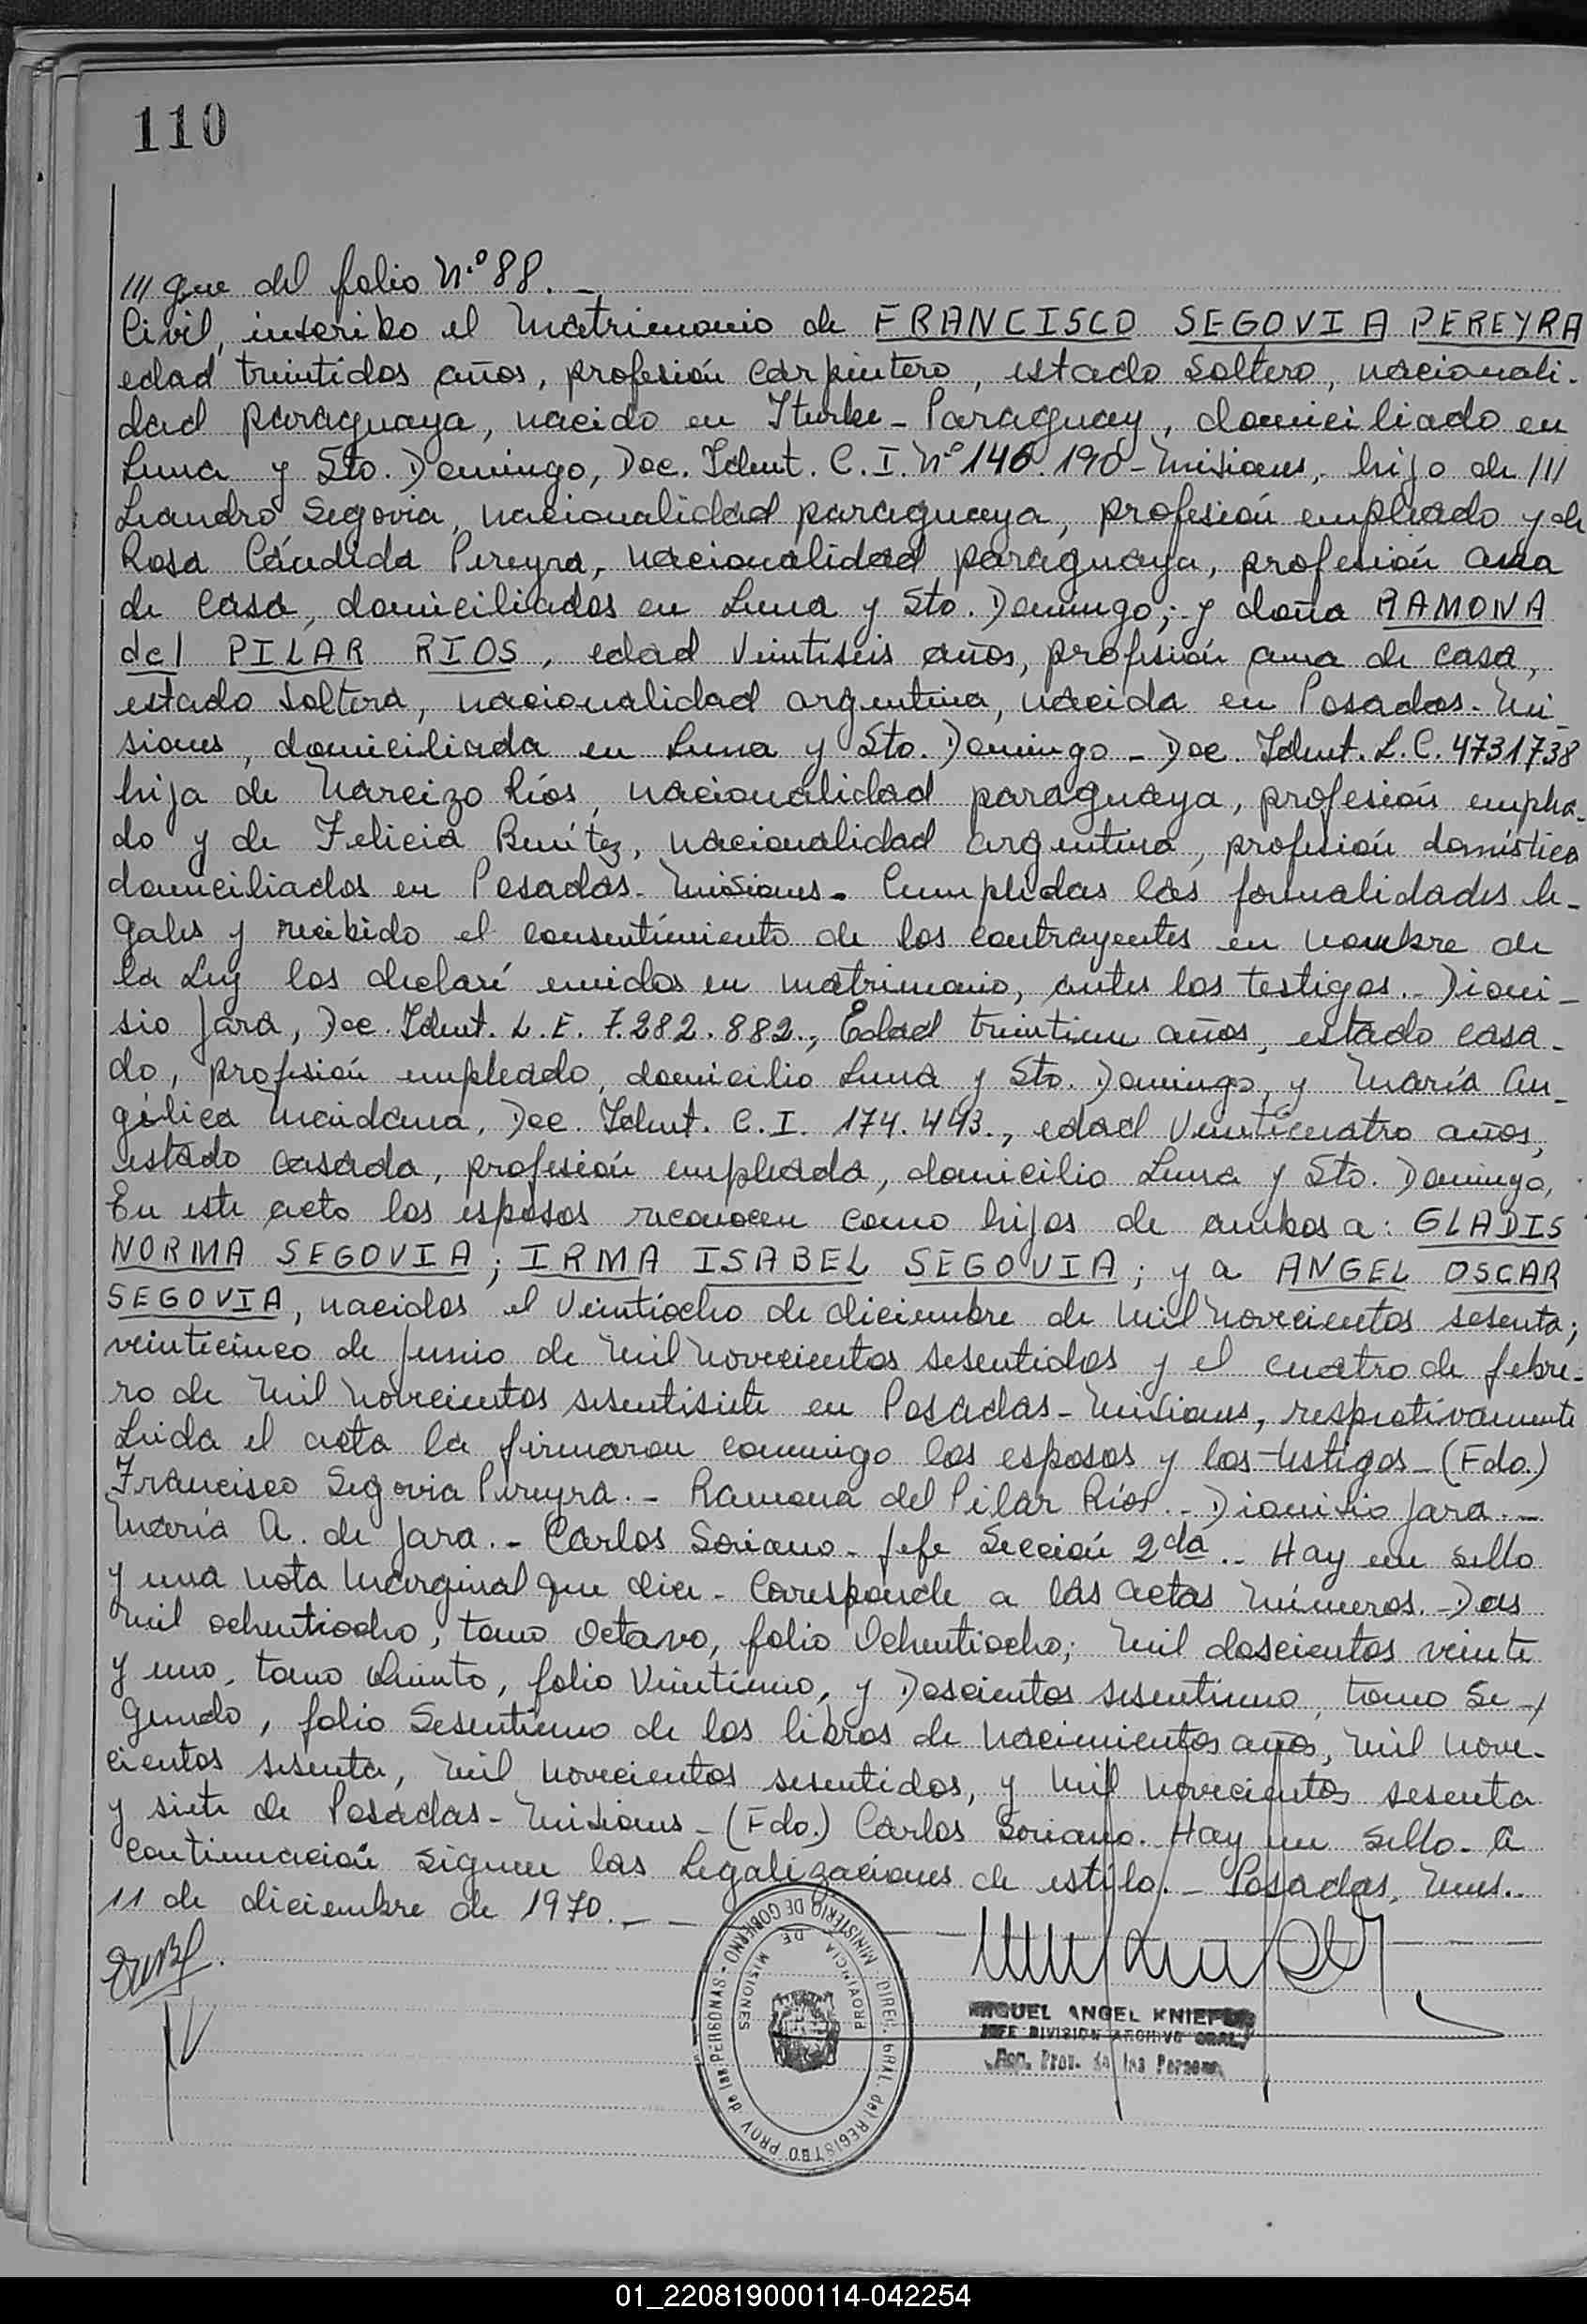 110
/// que del folio N.º 88. -
Civil, inscribo el Matrimonio de FRANCISCO SEGOVIA PEREYRA
edad treintidos años, profesión carpintero, estado soltero, nacionali-
dad paraguaya, nacido en Iturbe - Paraguay, domiciliado en
Luna y Sto. Domingo, Doc. Ident. C. I. Nº 146.190 - Misiones, hijo de ///
Leandro Segovia, nacionalidad paraguaya, profesión empleado y de
Rosa Cándida Pereyra, nacionalidad paraguaya, profesión ama
de casa, domiciliados en Luna y Sto. Domingo; y doña RAMONA
del PILAR RIOS, edad veintiseis años, profesión ama de casa,
estado soltera, nacionalidad argentina, nacida en Posadas - Mi-
siones, domiciliada en Luna y Sto. Domingo - Doc. Ident. L. C. 4731738
hija de Narcizo Ríos, nacionalidad paraguaya, profesión emplea-
do y de Felicia Benítez, nacionalidad argentina, profesión doméstica
domiciliados en Posadas - Misiones. Cumplidas las formalidades le-
gales y recibido el consentimiento de los contrayentes en nombre de
la Ley los declaré unidos en matrimonio, antes los testigos. - Dioni-
sio Jara, Doc. Ident. L. E. 7.282.882., Edad treintiun años, estado casa-
do, profesión empleado, domicilio Luna y Sto. Domingo, y María An-
gélica Maidana, Doc. Ident. C. I. 174.443., edad veinticuatro años,
estado casada, profesión empleada, domicilio Luna y Sto. Domingo,
En este acto los esposos reconocen como hijos de ambos a: GLADIS
NORMA SEGOVIA; IRMA ISABEL SEGOVIA; y a ANGEL OSCAR
SEGOVIA, nacidos el veintiocho de diciembre de mil novecientos sesenta;
veinticinco de junio de mil novecientos sesentidos y el cuatro de febre-
ro de mil novecientos sesentisiete en Posadas - Misiones, respectivamente
Leida el acta la firmaron conmigo los esposos y los testigos - (Fdo.)
Francisco Segovia Pereyra. - Ramona del Pilar Ríos. - Dionisio Jara. -
María A. de Jara. - Carlos Soriano - Jefe Sección 2da. - Hay un sello
y una nota marginal que dice - Coresponde a las actas números. - Dos
mil ochentiocho, tomo octavo, folio Ochentiocho; mil doscientos veinte
y uno, tomo Quinto, folio Veintiuno, y Doscientos sesentiuno, tomo Se-
gundo, folio Sesentiuno de los libros de nacimientos años, mil nove-
cientos sesenta, mil novecientos sesentidos, y mil novecientos sesenta
y siete de Posadas - Misiones - (Fdo.) Carlos Soriano. Hay un sello - A
continuación siguen las Legalizaciones de estilo. - Posadas, Mnes..
11 de diciembre de 1970. - -
DIREC. GRAL. del REGISTRO PROV de las PERSONAS - MINISTERIO DE GOBIERNO -
PROVINCIA DE MISIONES
MIGUEL ANGEL KNIEF
JEFE DIVISION ARCHIVO GRAL.
Reg. Prov. de las Personas
01_220819000114-042254